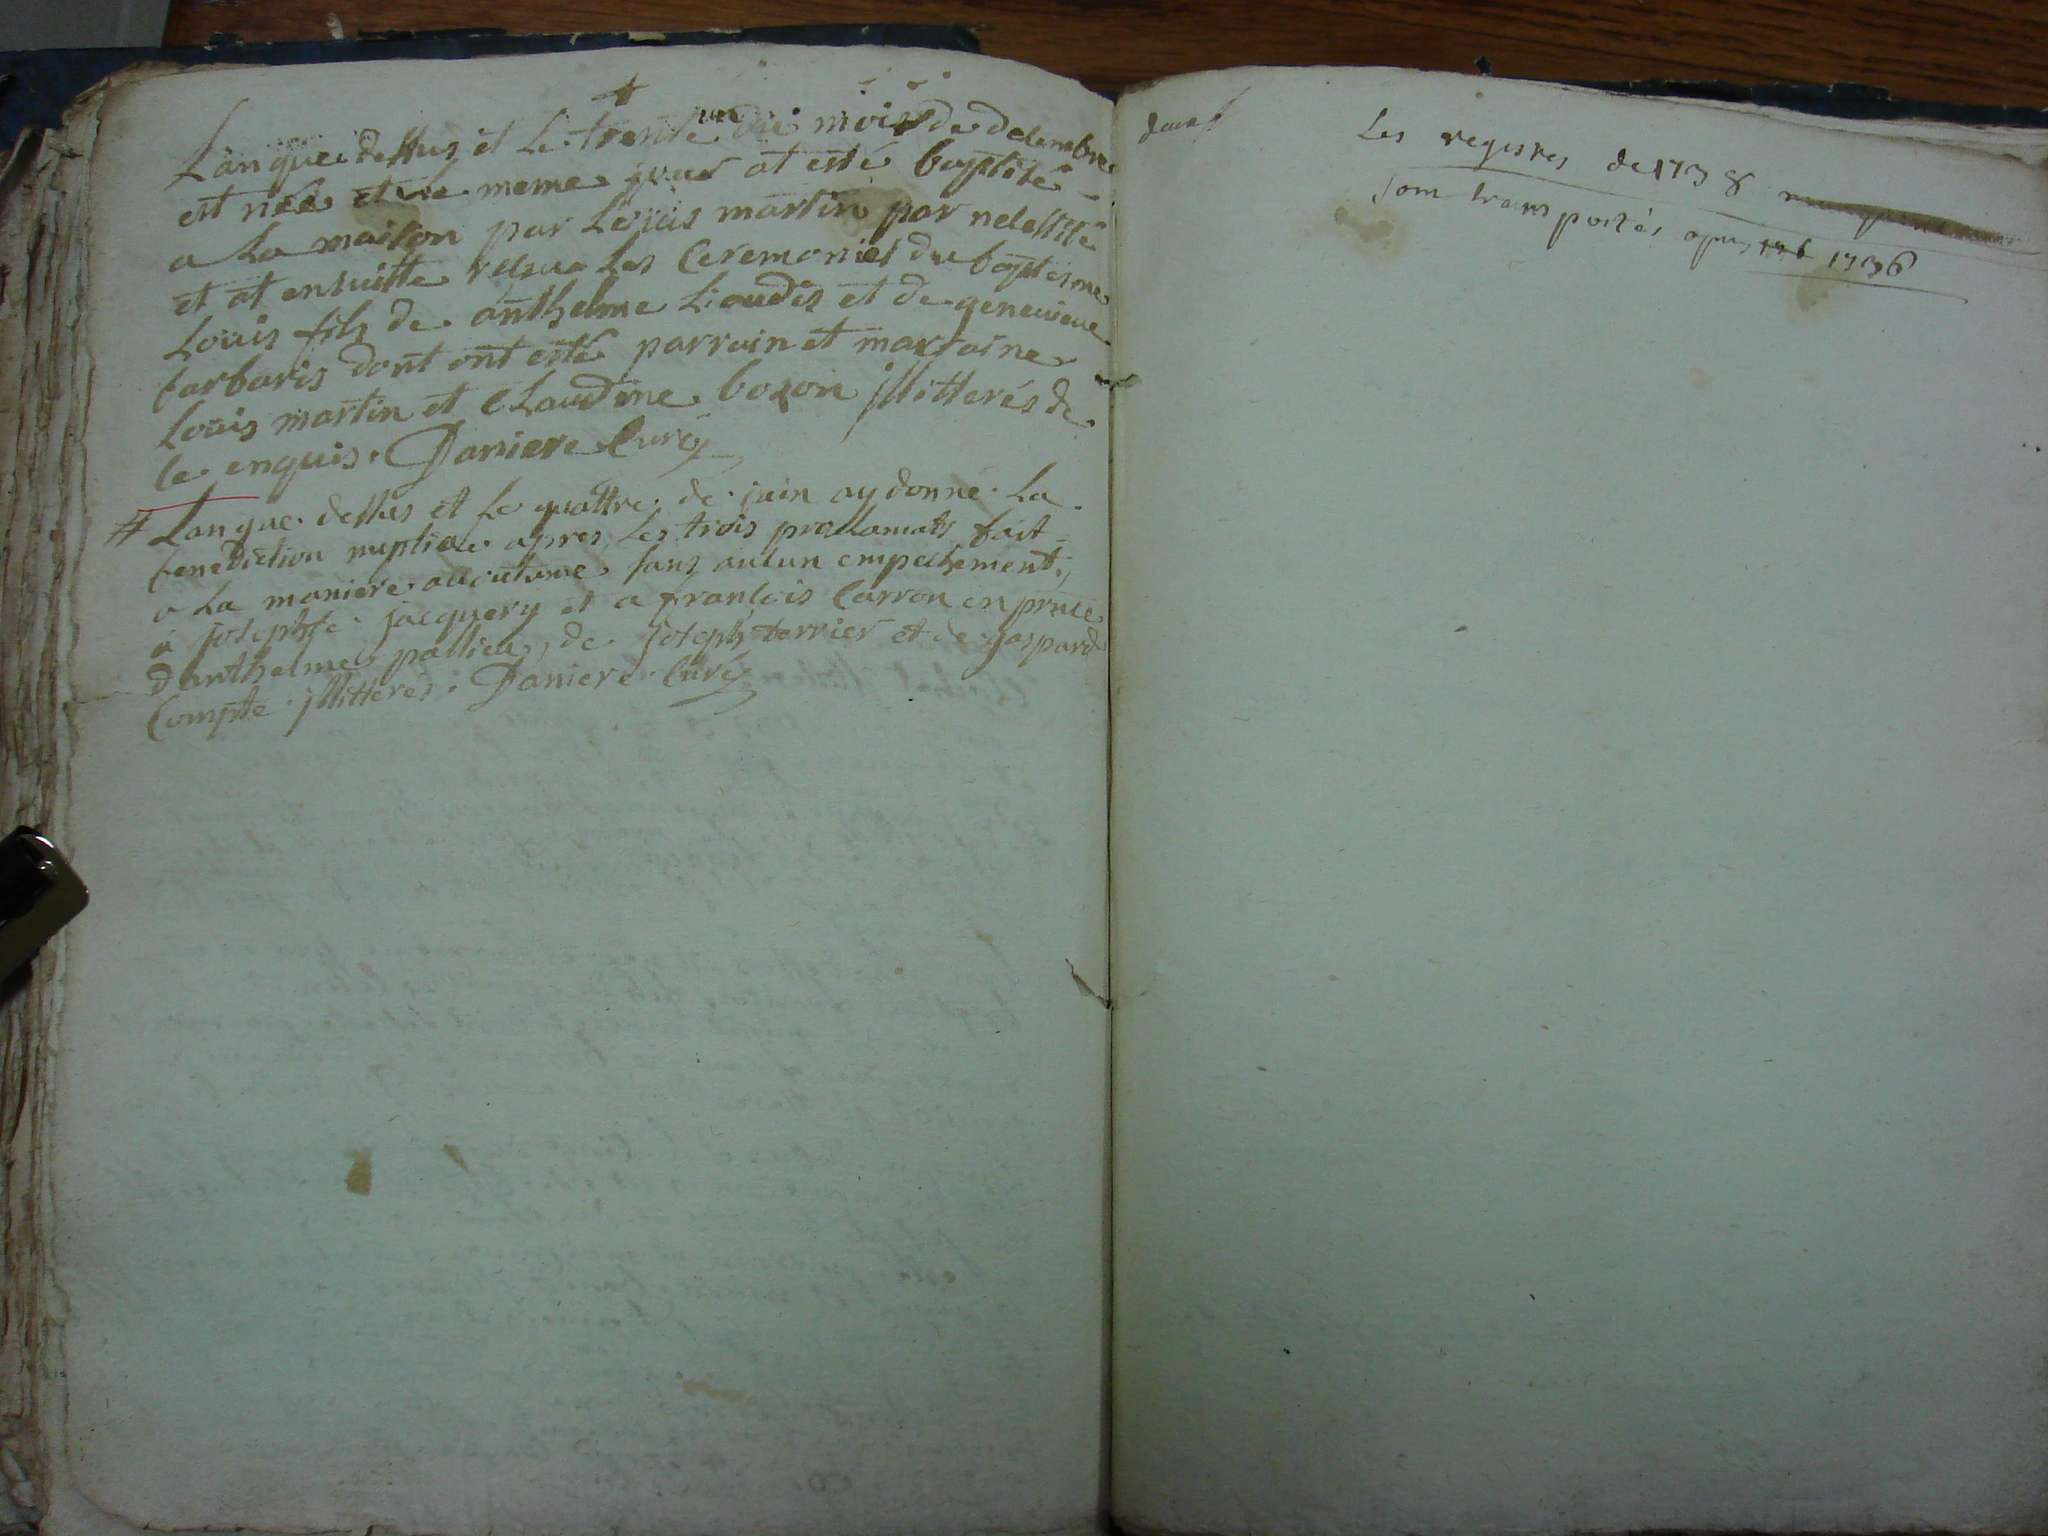 L'an que dessus et le trente un du mois de decembre
est née et le meme jour at esté baptisé
a la maison par Loüis martin par necessité
et at ensuitte resçue les ceremonies du baptesme
Loüis fils de anthelme Lioudès et de genevieve
barbaris dont ont esté parrain et marraine
Loüis martin et Claudine bozon jllitterés de
ce enquis. Daniere Curé
# L'an que dessus et le quattre de juin ay donné la
benediction nuptiale apres les trois proclamats fait
a la maniere accoutume sans aucun empechement
a josephte jacquery et a françois Carron en pnce
d'anthelme pallieu, de joseph terrier et de gaspard
Compte jllitteres. Daniere Curé
Les registres de 1738
sont transportés apres 1736